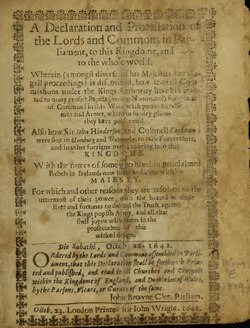 A Declaration and Protestation of
the Lords and Commons in Par-
liament, to this Kingdome, and
to the whole world.
Wherein (amongst divers of his Majesties
proceedings) is discovered, how severall Com-
missions under the Kings Authority have
to many profest Papists
and Armes, which in many places
they have performed.
Also how Sir John Henderson, and Colonell Cockram
were sent to Hamburg and Denmarke to raise Forces there,
and in other forraigne parts, to bring into this
KINGDOME.
With the names of some who have bin proclaimed
Rebels in Ireland now in great favour with his
MAJESTY.
For which and other reasons they are resolved to the
uttermost of their power, with the hazard of their
lives and fortunes to defend the Truth against
the Kings popish Army, and all that
shall joyne with them in the
prosecution of this
wicked designe
Die Sabathi, Octob. 22. 1642.
Ordered by the Lords and Commons assembled in Parli-
ament, that this Declaration shall be forthwith Prin-
ted and published, and read in all Churches and Chappels
within the Kingdome of England, and Dominion of Wales,
by the Parsons, Vicars, or Curats of the same.
John Browne Cler. Parliam.
Octob. 23. London Printed for John Wright. 1642.